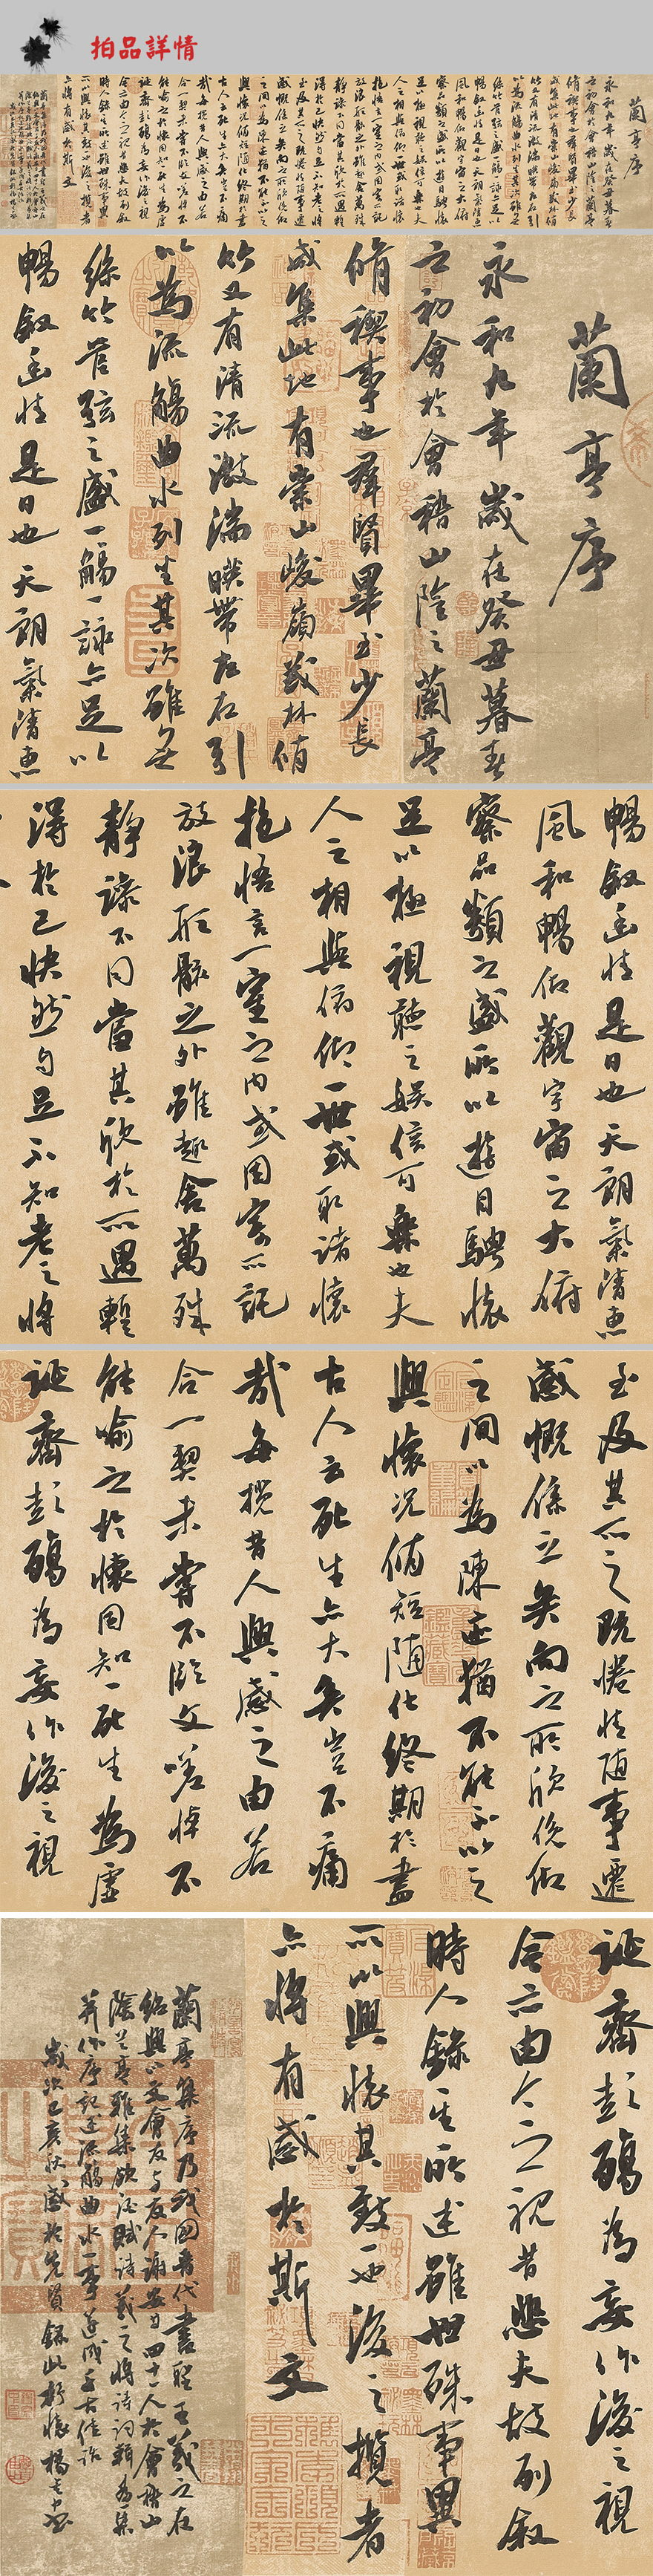 拍品詳情
蘭亭序
永和九年歲在癸丑暮春
之初會於會稽山陰之蘭亭
脩稧事也群賢畢至少長
咸集此地有崇山峻嶺茂林脩
竹又有清流激湍暎帶左右引
以為流觴曲水列坐其次雖無
絲竹管弦之盛一觴一詠亦足以
暢敘幽情是日也天朗氣清惠
暢敘幽情是日也天朗氣清惠
風和暢仰觀宇宙之大俯
察品類之盛所以遊目騁懷
足以極視聽之娛信可樂也夫
人之相與俯仰一世或取諸懷
抱悟言一室之內或因寄所託
放浪形骸之外雖趣舍萬殊
靜躁不同當其欣於所遇暫
得於己快然自足不知老之將
至及其所之既惓情隨事遷
感慨係之矣向之所欣俛仰
之間以為陳迹猶不能不以之
興懷況脩短隨化終期於盡
古人云死生亦大矣豈不痛
哉每攬昔人興感之由若
合一契未嘗不臨文嗟悼不
能喻之於懷固知一死生為虛
誕齊彭殤為妄作後之視
誕齊彭殤為妄作後之視
今亦由今之視昔悲夫故列敘
時人錄其所述雖世殊事異
所以興懷其致一也後之攬者
亦將有感於斯文
蘭亭集序乃我國晉代書聖王羲之在
紹興以文會友与友人謝安等四十一人於會稽山
陰蘭亭雅集飲酒賦詩羲之將詩詞輯為一集
并作序記述流觴曲水一事遂成千古佳話
歲次己亥秋感於先賢錄此抒懷楊